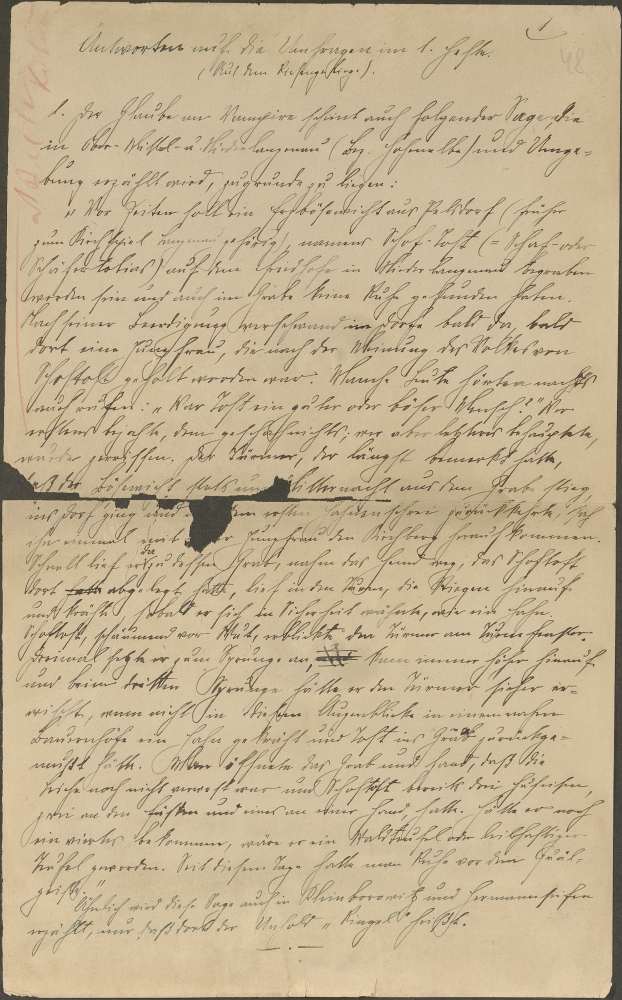 1
48
Antworten auf die Umfragen im 1. Hefte.
(Aus dem Riesengebirge).
1. Der Glaube an Vampire scheint auch folgender Sage, die
in Ober- Mittel- u. Niederlangenau (Bez. Hohenelbe) und Umge-
bung erzählt wird, zugrunde zu liegen:
"Vor Zeiten soll ein Erzbösewicht aus Pelsdorf (früher
zum Kirchspiel Langenau gehörig), namens Schof-Tost (= Schaf- oder
Schäfer tobias) auf dem Friedhofe in Niederlangenau begraben
worden sein und auch im Grabe keine Ruhe gefunden haben.
Nach seiner Beerdigung verschwand im Dorfe bald da, bald
dort eine Jungfrau, die nach der Meinung des Volkes von
Schoftost geholt worden war. Manche Leute hörten nachts
auch rufen: "War Tost ein guter oder böser Mensch?" Wer
ersteres bejahte, dem geschah nichts; wer aber letzteres behauptete,
wurde zerrissen. Der Türmer, der längst bemerkt hatte,
daß der Bösewicht stets um Mitternacht aus dem Grabe stieg,
ins Dorf ging und dem ersten Hahnenschrei zurückkehrte, sah
ihn einmal mit der Jungfrau den Kirchberg herauf kommen.
Schnell lief er da zu dessen Grab, nahm das Hemd weg, das Schoftost
dort abgelegt hatte, lief in den Turm, die Stiegen hinauf
und krähte, sobald er sich in Sicherheit wähnte, wie ein Hahn.
Schoftost, schäumend vor Wut, erblickte den Türmer am Turmfenster.
Dreimal setzte er zum Sprunge an, kam immer höher hinauf
und beim dritten Sprunge hätte er den Türmer sicher er-
wischt, wenn nicht in diesem Augenblicke in einem nahen
Bauernhofe ein Hahn gekräht und Tost ins Grab zurückge-
mußt hätte. Man öffnete das Grab und fand, daß die
Leiche noch nicht verwest war und Schoftost bereits drei Hufeisen,
zwei an den Füßen und eines an einer Hand, hatte. Hätte er noch
ein viertes bekommen, wäre er ein Waldteufel oder leibhaftiger
Teufel geworden. Seit diesem Tage hatte man Ruhe vor dem Quäl-
geist."
Ähnlich wird diese Sage auch in Kleinborowitz und Hermannseifen
erzählt, nur daß dort der Unhold "Ringel" heißt.